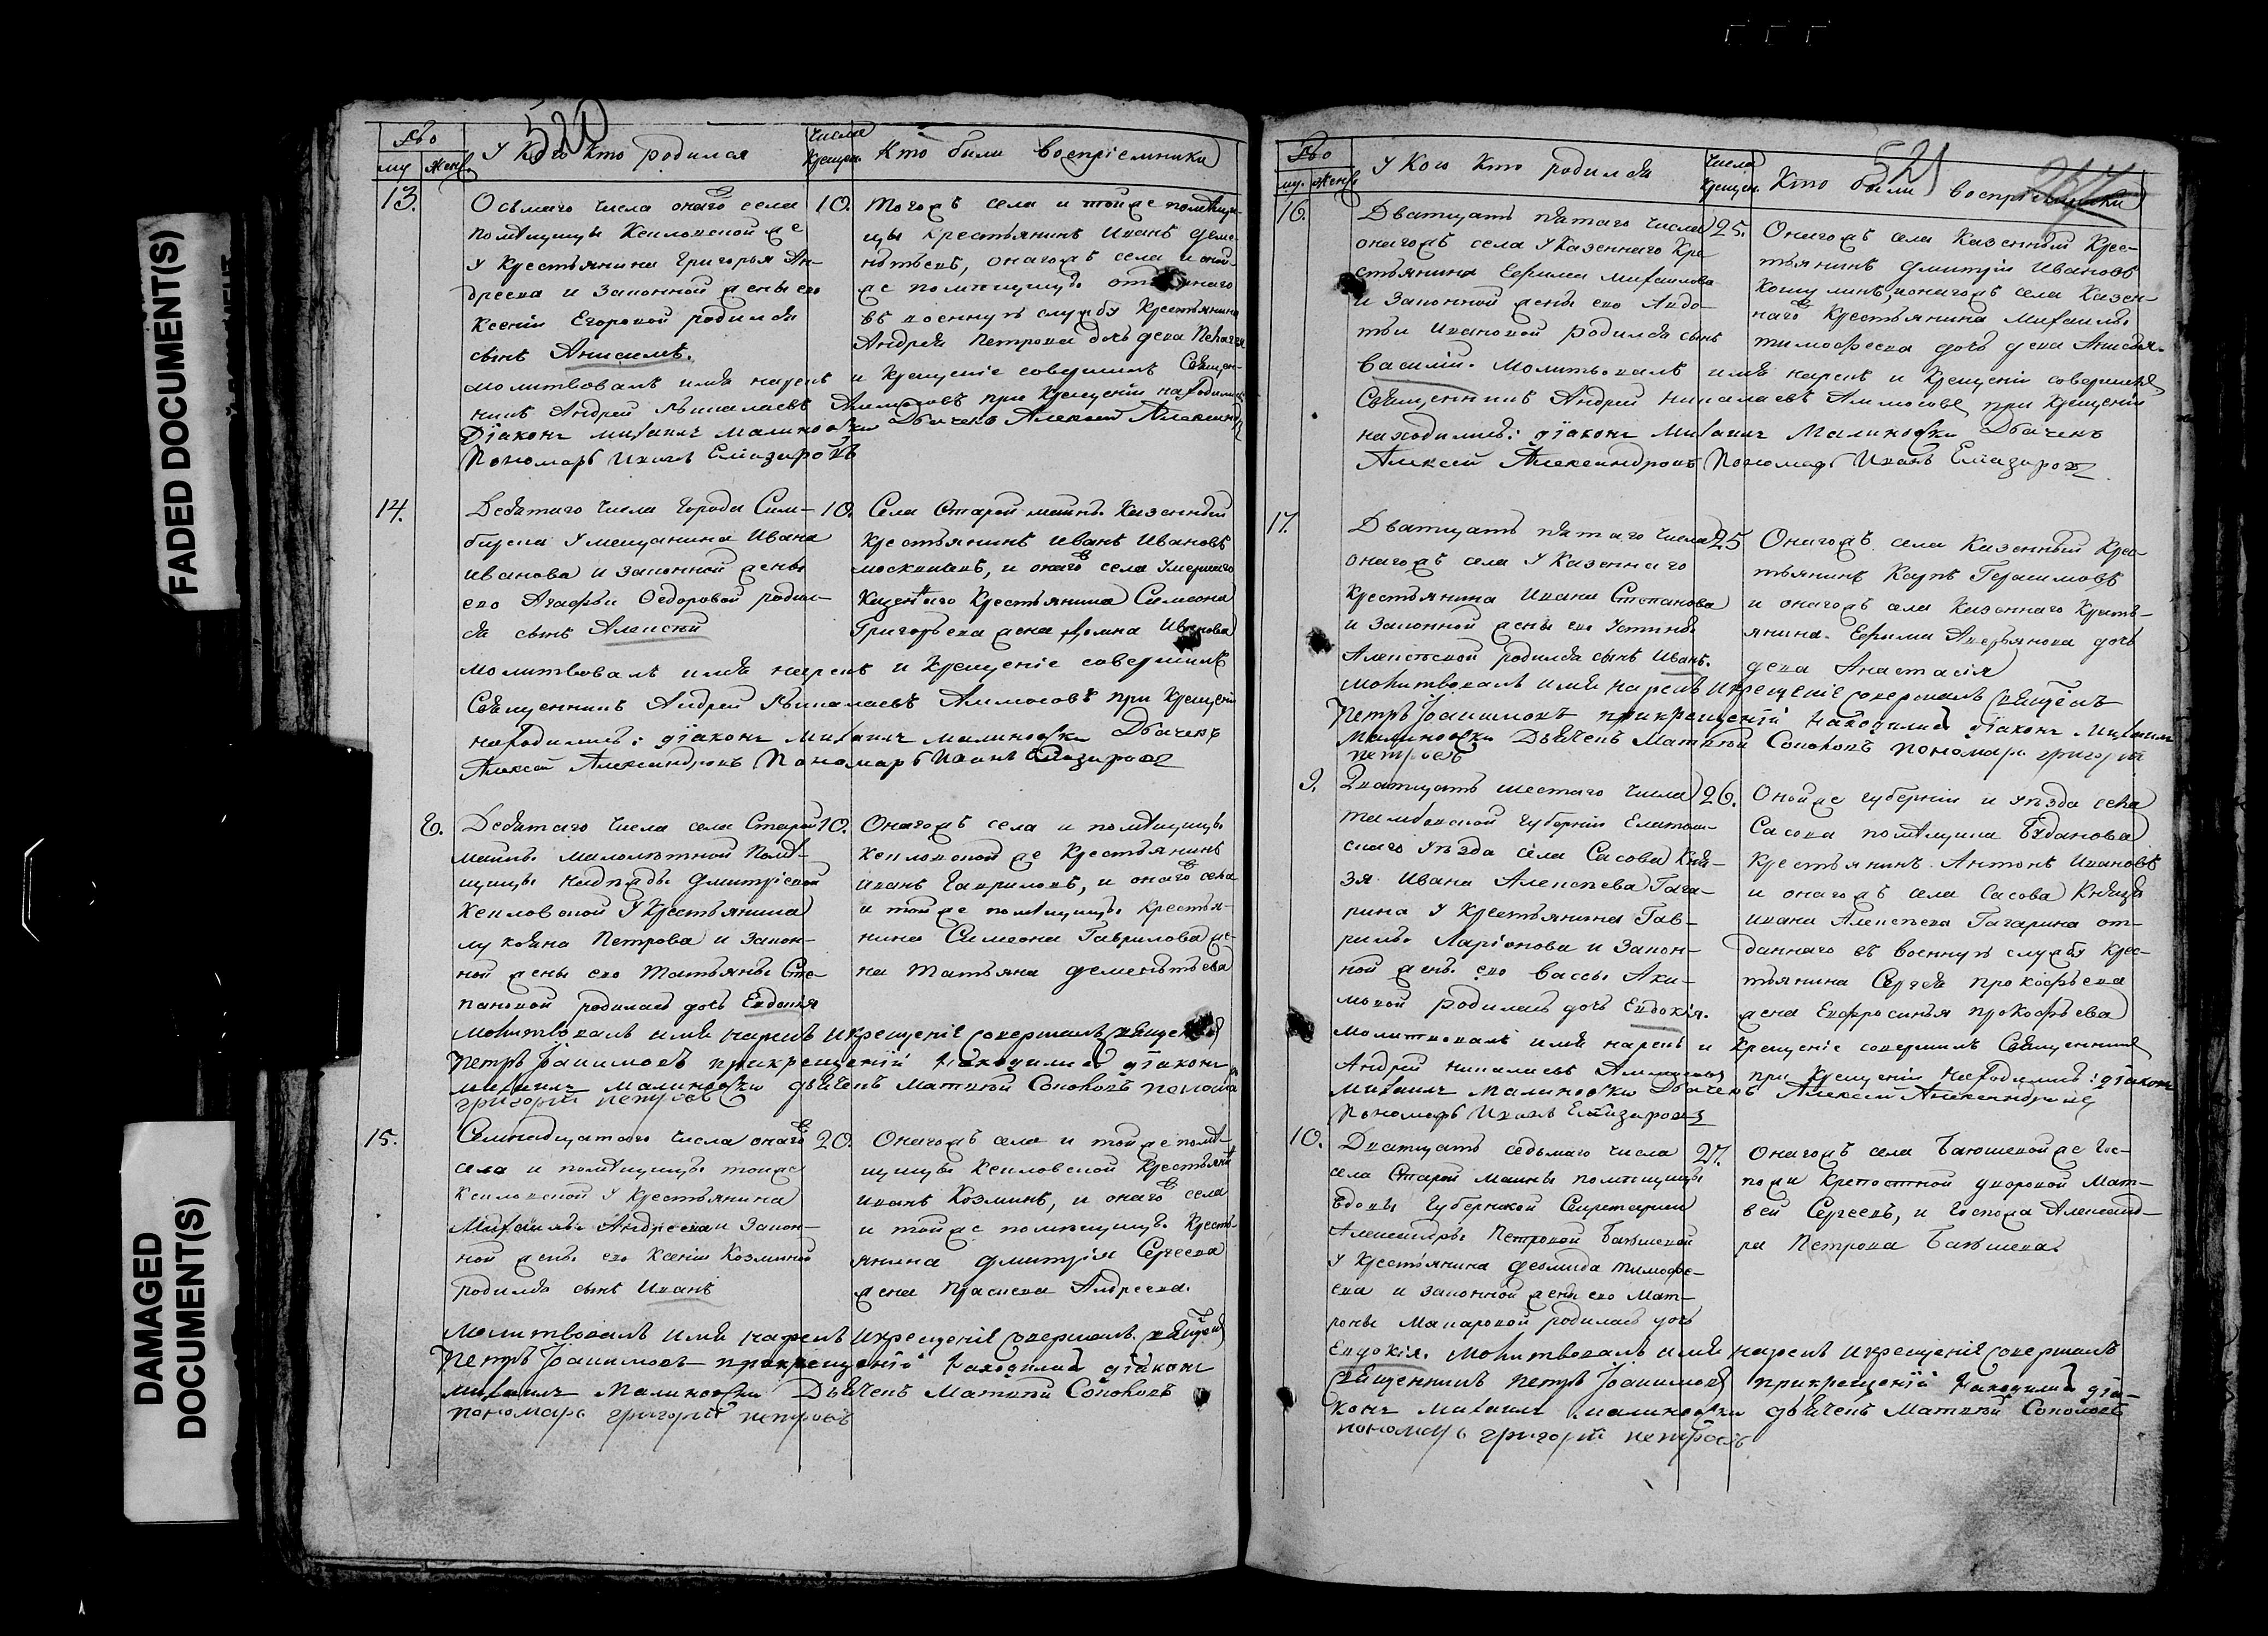 FADED DOCUMENT(S)
DAMAGED
DOCUMENT(S)
520
му женс.
У Кого кто родился
числа
крещен.
Кто были воспріемники
13.
Осьмаго числа онаго села
помѣщицы Кепловской же
у крестьянина Григорья Ан-
дреева и Законной жены его
Ксеніи Егоровой родился
сынъ Анисимъ.
10.
тогожъ села и тойже помѣщи-
цы крестьянинъ Иванъ Деме-
нтьевъ, оногожъ села и оной-
же помѣщицы отданнаго
въ военную службу крестьянина
Андрея Петрова дочь дева Пелагея
молитвовалъ имя нарекъ и крещеніе совершилъ Священ-
никъ Андрей Николаевъ Аммосовъ при крещеніи находились
Діаконъ Михаилъ Малиновски Дьячекъ Алексей Александр
Пономарь Иванъ Елизаровъ
14.
Девятаго числа города Сим-
бирска У мещанина Ивана
Иванова и законной жены
его Агафьи Федоровой родил-
ся сынъ Алексей
10.
Села Старой майны Казенный
крестьянинъ Иванъ Ивановъ
москвинъ, и онаго села умершаго
Казеннаго Крестьянина Симеона
Григорьева жена Домна Иванова
молитвовалъ имя нарекъ и крещеніе совершилъ
Священникъ Андрей Николаевъ Аммосовъ при крещеніи
находились: діаконъ Михаилъ Малиновски Дьячекъ
Алексей Александровъ Пономарь Иванъ Елизаровъ
8.
Девятаго числа села Старой
майны малолѣтной Помѣ-
щицы Надежды Дмитріевой
Кепловской У Крестьянина
лукояна Петрова и Закон-
ной жены его Татьяны Сте-
пановой родилась дочь Евдокія
10.
Оногожъ села и помѣщицы
Кепловской же Крестьянинъ
Иванъ Гавриловъ, и онаго села
и тойже помѣщицы Крестья-
нина Симеона Гаврилова же-
на Татьяна Дементьева
молитвовалъ имя нарекъ и крещеніе совершалъ священникъ
Петръ Іоакимовъ при крещеніи находились діаконъ
Михаилъ Малиновски дьячекъ Матвей Соколовъ пономарь
григорій петровъ
15.
Семнадцатаго числа онаго
села и помѣщицы тойже
Кепловской У крестьянина
Михаила Андреева и Закон-
ной жены его Ксеніи Козминой
родился сынъ Иванъ
20.
Оногожъ села и тойже помѣ-
щицы Кепловской Крестьянинъ
Иванъ Козминъ, и онаго села
и тойже помѣщицы Кресть-
янина Дмитрія Сергеева
жена Прасковья Андреева.
Молитвовалъ имя нарекъ и крещеніе совершалъ
Петръ Іоакимовъ при крещеніи находились діаконъ
Михаилъ Малиновски Дьячекъ Матвей Соколовъ
пономарь григорій петровъ
521
му. женс.
У Кого кто родился
числа
крещен.
Кто были воспріемники
16.
Дватцать пятаго числа
оногожъ села У Казеннаго Кре-
стьянина Ефима Михаилова
и Законной жены его Авдо-
тьи Ивановой родился сынъ
Василій.
25.
Оногожъ села Казенный Крес-
тьянинъ Дмитрій Ивановъ
Кошулинъ, оногожъ села Казен-
наго Крестьянина Михаила
тимофеева дочь дева Анисья.
Молитвовалъ имя нарекъ и Крещеніе совершилъ
Священникъ Андрей Николаевъ Аммосовъ при крещеніи
находились: діаконъ Михаилъ Малиновски Дьячекъ
Алексей Александровъ Пономарь Иванъ Елизаровъ
17.
Дватцать пятаго числа
оногожъ села У Казеннаго
Крестьянина Ивана Степанова
и Законной жены его Устиньи
Алексеевой родился сынъ Иванъ.
25
Оногожъ села Казенный Крес-
тьянинъ Карпъ Герасимовъ
и оногожъ села Казеннаго Кресть-
янина Ефима Аверьянова дочь
дева Анастасія
молитвовалъ имя нарекъ и крещеніе совершалъ
Петръ Іоакимовъ при крещеніи находились діаконъ Михаилъ
Малиновски Дьячекъ Матвей Соколовъ пономарь григорій
петровъ
9.
Дватцать шестаго числа
тамбовской Губерніи Елатом-
скаго уѣзда села Сасова Кня-
зя Ивана Алексеева Гага-
рина У Крестьянина Гав-
рилы Ларіонова и Закон-
ной жены его Вассы Аки-
мовой родилась дочь Евдокія.
26.
Онойже губерніи и уѣзда села
Сасова помѣщика Буданова
Крестьянинъ Антонъ Ивановъ
и оногожъ села Сасова Князя
Ивана Алексеева Гагарина от-
даннаго въ военную службу Крес-
тьянина Сергея Прокофьева
жена Евфросинья Прокофьева
молитвовалъ имя нарекъ и Крещеніе совершилъ Священникъ
Андрей Николаевъ Аммосовъ при Крещеніи находились: діаконъ
Михаилъ Малиновски Дьячекъ Алексей Александровъ
Пономарь Иванъ Елизаровъ
10.
Дватцать седьмаго числа
села Старой Майны помѣщицы
вдовы Губернской Секретарши
Александры Петровой Баюшевой
У Крестьянина Деомида Тимофе-
ева и законной жены его Мат-
роны Макаровой родилась дочь
Евдокія.
27.
Оногожъ села Баюшевой же Гос-
пожи Крепостной дворовой Мат-
вей Сергеевъ, и Госпожа Александ-
ра Петрова Баюшева.
Молитвовалъ имя нарекъ и крещеніе совершалъ
Священникъ Петръ Іоакимовъ при крещеніи находились діа-
конъ Михаилъ Малиновски дьячекъ Матвей Соколовъ
пономарь григорій петровъ